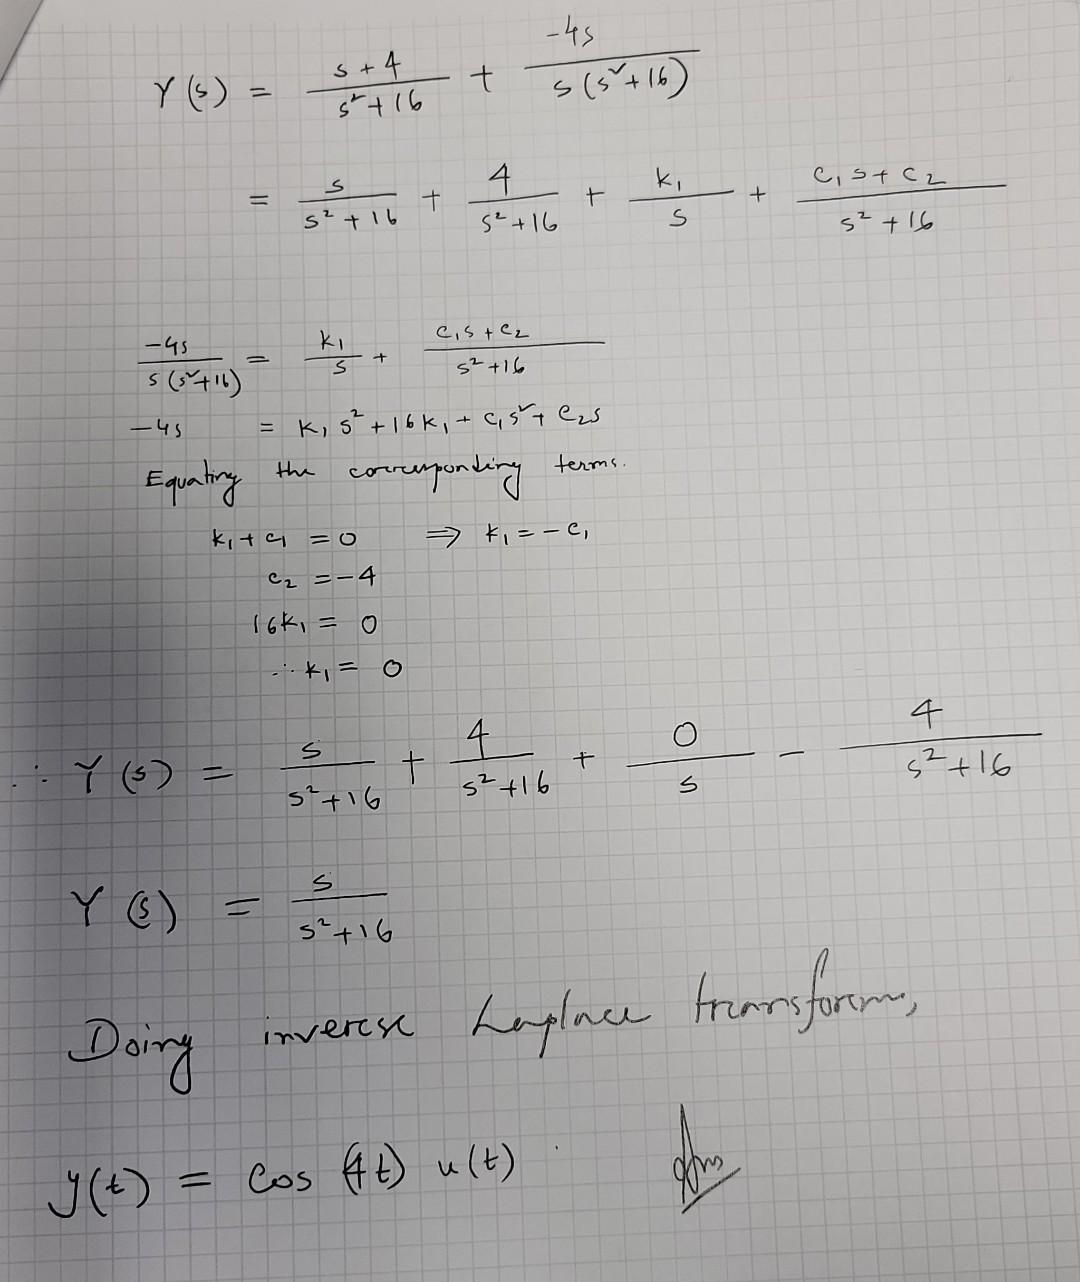 Y(s) = (s+4)/(s²+16) + (-4s)/(s(s²+16))
= s/(s²+16) + 4/(s²+16) + k₁/s + (c₁s+c₂)/(s²+16)
-4s/(s(s²+16)) = k₁/s + (c₁s+c₂)/(s²+16)
-4s = k₁s²+16k₁+c₁s²+c₂s
Equating the corresponding terms.
k₁+c₁ = 0 ⇒ k₁ = -c₁
c₂ = -4
16k₁ = 0
∴ k₁ = 0
∴ Y(s) = s/(s²+16) + 4/(s²+16) + 0/s - 4/(s²+16)
Y(s) = s/(s²+16)
Doing inverse Laplace transform,
y(t) = cos(4t) u(t). Ans